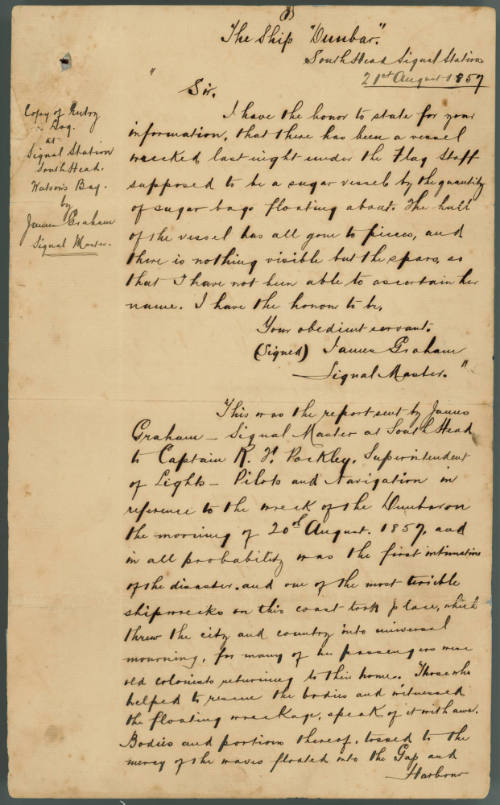 The Ship "Dunbar".
South Head Signal Station
21st August 1857
" Sir,
Copy of Entry
Log.
at
Signal Station
South Head.
Watsons Bay.
by
James Graham
Signal Master.
I have the honor to state for your
information, that there has been a vessel
wrecked last night under the Flag Staff
supposed to be a sugar vessel by the quantity
of sugar bags floating about. The hull
of the vessel has all gone to pieces, and
there is nothing visible but the spars, so
that I have not been able to ascertain her
name. I have the honor to be,
Your obedient servant.
(Signed) James Graham
Signal Master. "
This was the report sent by James
Graham - Signal Master at South Head
to Captain R. F. Pockley, Superintendent
of Lights - Pilots and Navigation in
reference to the wreck of the Dunbar on
the morning of 20th August. 1857, and
in all probability was the first intimation
of the disaster. and one of the most terrible
shipwrecks on this coast took place, which
threw the city and country into universal
mourning, for many of her passengers were
old colonists returning to their homes. Those who
helped to rescue the bodies and witnessed
the floating wreckage, speak of it with awe.
Bodies and portions thereof, tossed to the
mercy of the waves floated into the Gap and
Harbour